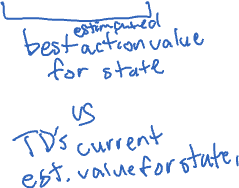 estimated
best action value
for state
vs
TD's current
est. value for state,